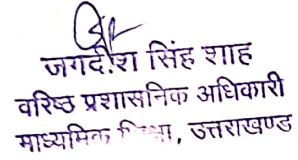 जगदीश सिंह शाह
वरिष्ठ प्रशासनिक अधिकारी
माध्यमिक शिक्षा, उत्तराखण्ड